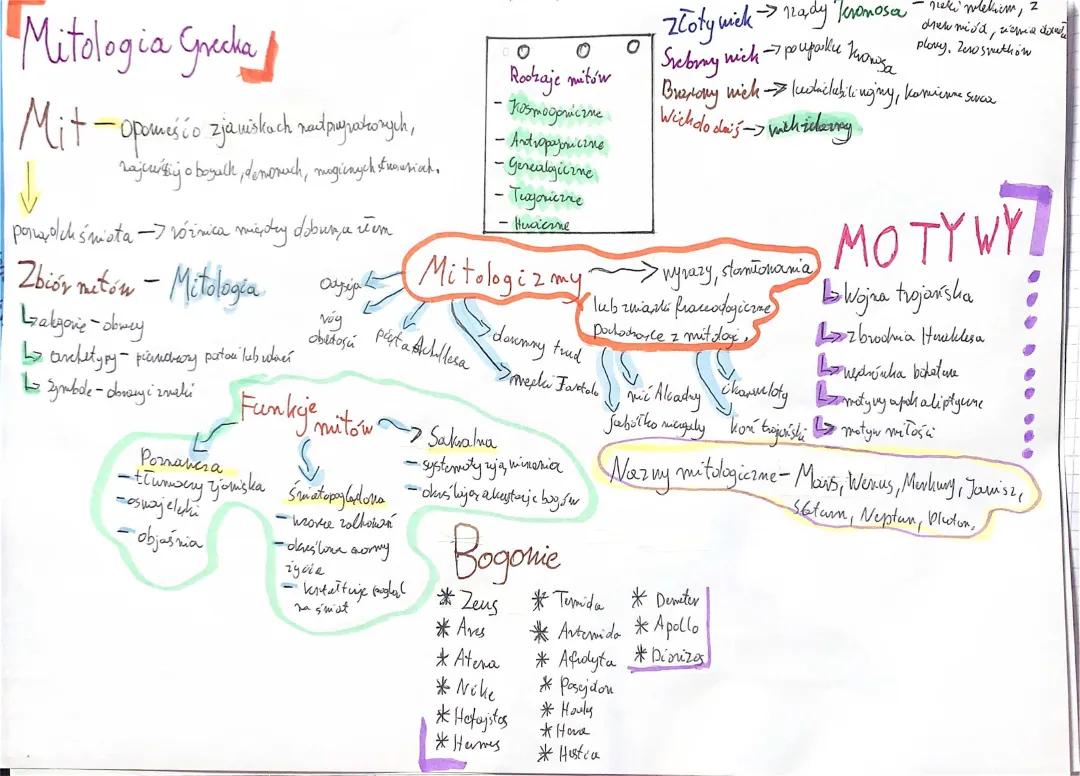 Mitologia Grecka
Mit - opowieść o zjawiskach nadprzyrodzonych,
najczęściej o bogach, demonach, magicznych stworzeniach.
porządek świata → różnica między dobrem, a złem
Zbiór mitów - Mitologia
alegorie - obrazy
archetypy - pierwotny postaci lub zdarzeń
Symbole - obrazy i znaki
Rodzaje mitów
- Kosmogoniczne
- Antropogeniczne
- Genealogiczne
- Teogoniczne
- Heroiczne
Złoty wiek → rządy Kronosa - rzeki mlekiem, z
drzew miód, ziemia dawała
plony. Zero smutków
Srebrny wiek → po upadku Kronosa
Brązowy wiek → ludzie lubili wojny, kamienne serca
Wiek do dziś → wiek żelazny
Mitologizmy → wyrazy, sformłowania
lub związki frazeologiczne
pochodzące z mitologi.
róg
obfitości
pięta Achillesa
daremny trud
męki Tantala
jabłko niezgody
nić Ariadny
koń trojański
ikarowe loty
MOTYWY
Wojna trojańska
zbrodnia Heraklesa
wędrówka bohatera
motywy apokaliptyczne
motyw miłości
Funkje
mitów
Poznawcza
- tłumaczy zjawiska
- oswaja lęki
- objaśnia
Światopoglądowa
- wzorce zachowań
- określone normy
życia
- kształtuje pogląd
na świat
Sakralna
- systemotyzują wierzenia
- określają charakter bogów
Nazwy mitologiczne - Mars, Wenus, Merkury, Jowisz,
Saturn, Neptun, Pluton,
Bogowie
* Zeus
* Ares
* Atena
* Nike
* Hefajstos
* Hermes
* Temida
* Artemida
* Afrodyta
* Posejdon
* Hades
* Hera
* Hestia
* Demeter
* Apollo
* Dionizos